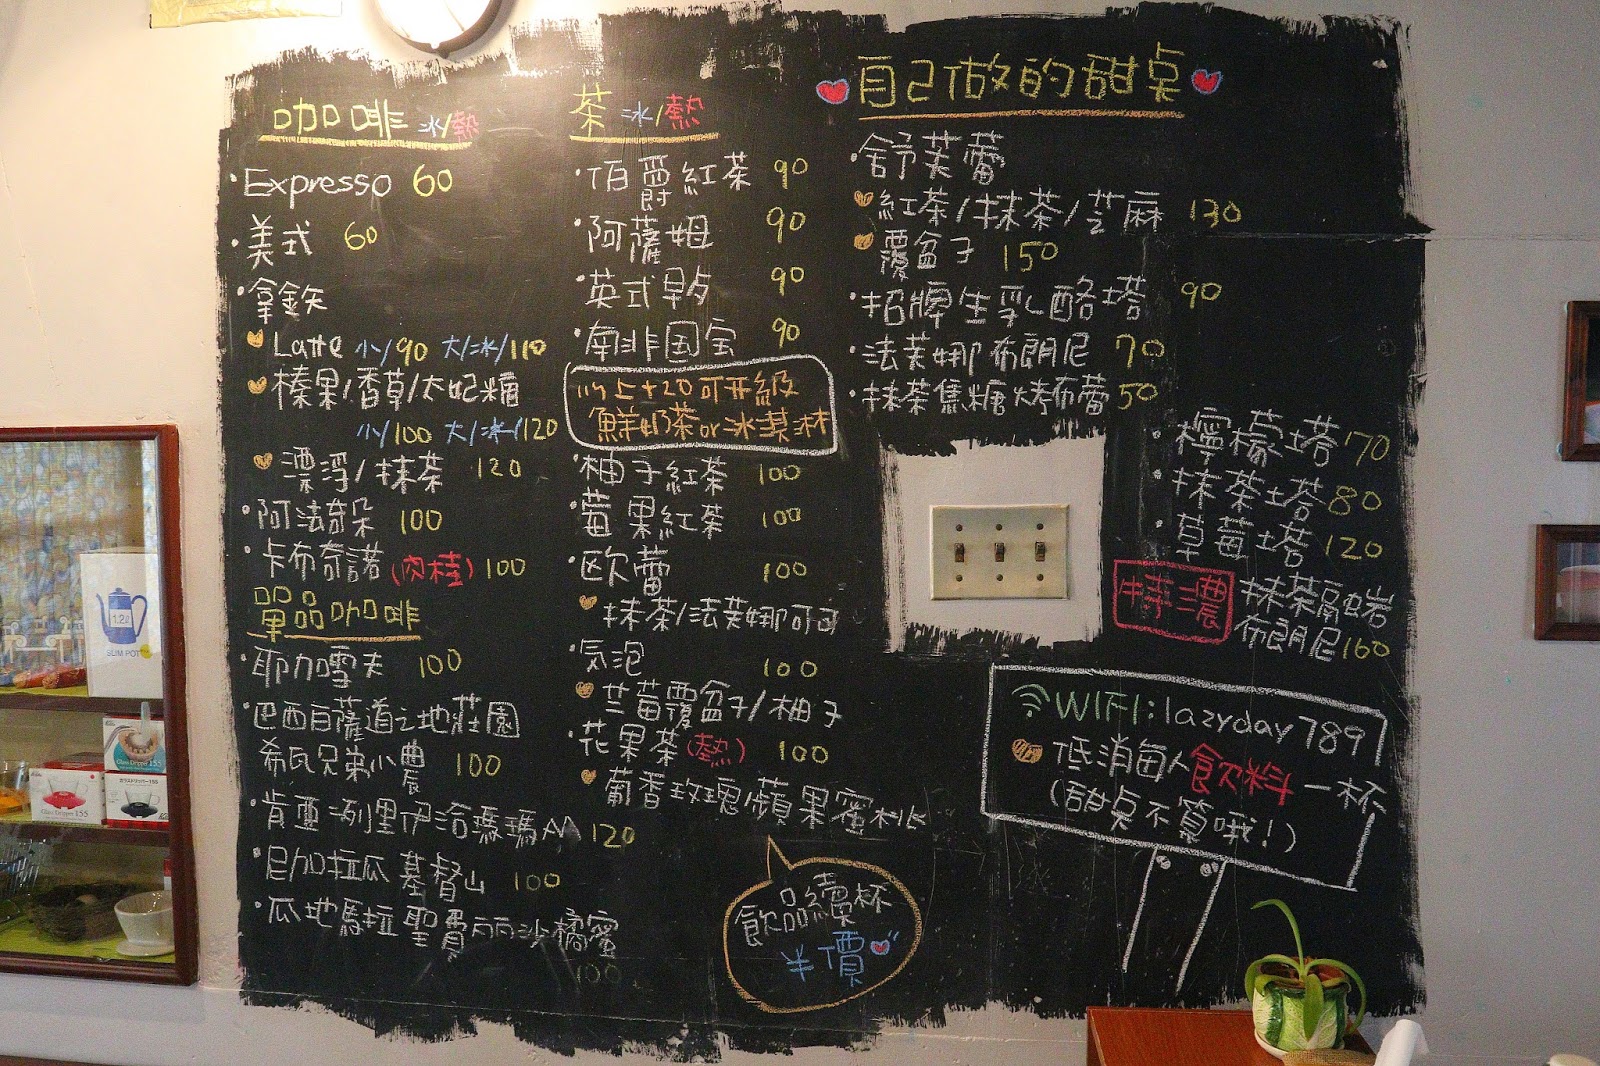 咖啡 冰/熱
·Expresso 60
·美式 60
·拿鉄
Latte 小/90 大/冰/110
榛果/香草/太妃糖
小/100 大/冰/120
漂浮/抹茶 120
·阿法奇朵 100
·卡布奇諾(肉桂)100
單品咖啡
·耶加雪夫 100
·巴西百薩道之地莊園
希瓦兄弟小農 100
·肯亞冽里伊洽瑪瑪AA 120
·尼加拉瓜基督山 100
·瓜地馬拉聖費麗沙橘蜜
100
茶 冰/熱
·伯爵紅茶 90
·阿薩姆 90
·英式早夕 90
·南非国宝 90
以上+20可升級
鮮奶茶or冰淇淋
·柚子紅茶 100
·莓果紅茶 100
·欧蕾 100
抹茶/法芙娜可可
·気泡 100
草莓覆盆子/柚子
·花果茶(熱) 100
葡香玫瑰/蘋果蜜桃
飲品續杯
半價
自己做的甜桌
·舒芙蕾
紅茶/抹茶/芝麻 130
覆盆子 150
·招牌生乳酪塔 90
·法芙娜布朗尼 70
·抹茶焦糖烤布蕾 50
·檸檬塔 70
·抹茶塔 80
·草莓塔 120
特濃 抹茶融岩
布朗尼 160
WIFI:lazyday789
低消每人飲料一杯
(甜桌不算哦!)
1.2L
SLIM POT
Glass Dripper 155
155